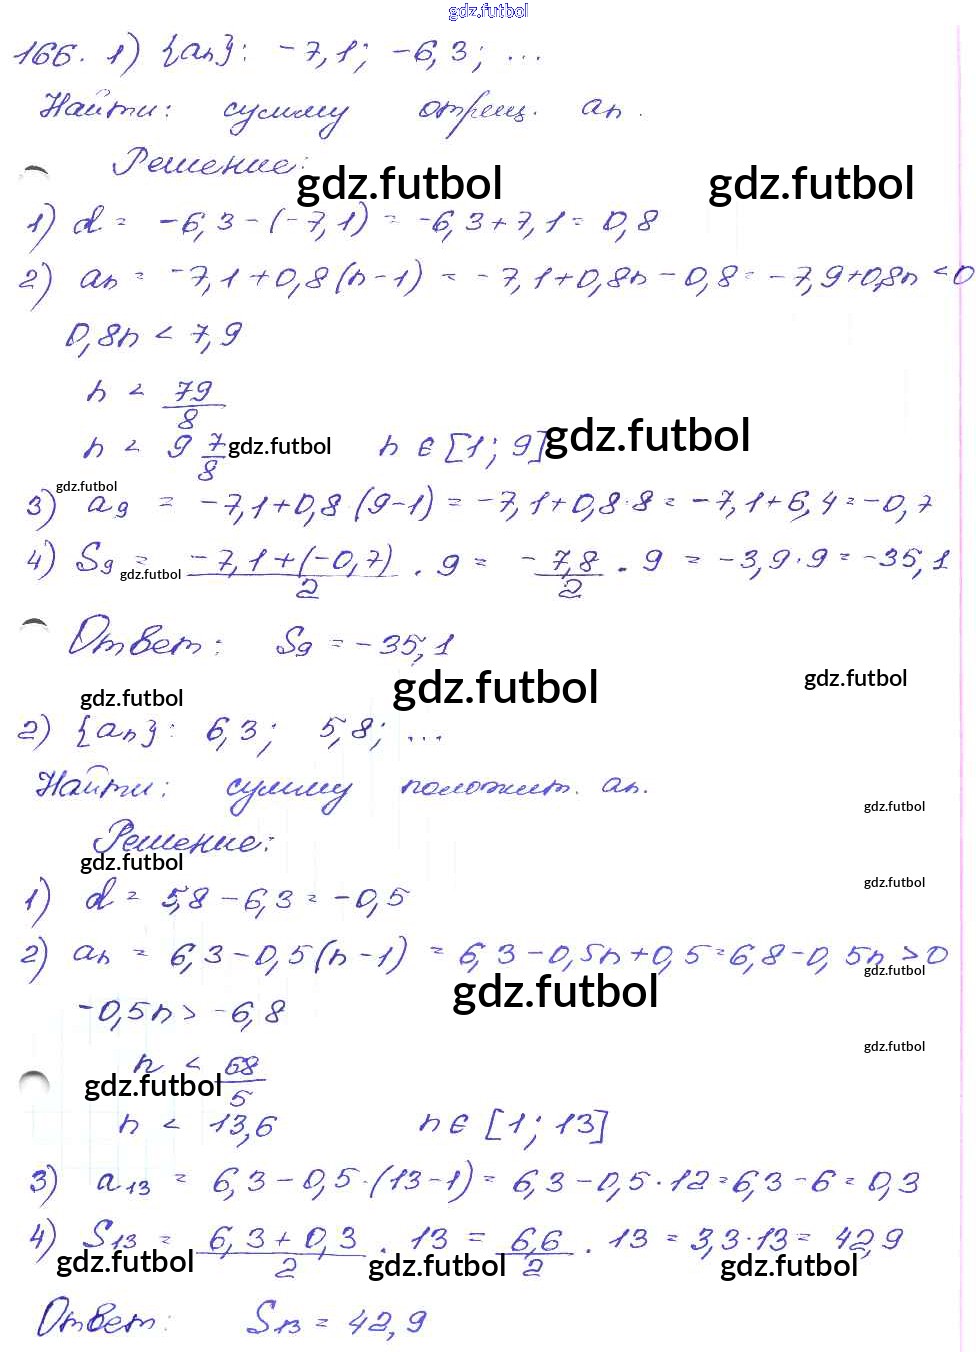 gdz.futbol
166. 1) {an}: -7,1; -6,3; ...
Найти: сумму отриц. an.
Решение:
gdz.futbol gdz.futbol
1) d = -6,3-(-7,1) = -6,3+7,1 = 0,8
2) an = -7,1+0,8(n-1) = -7,1+0,8n-0,8 = -7,9+0,8n < 0
0,8n < 7,9
n < 79/8
n < 9 7/8 gdz.futbol n ∈ [1; 9] gdz.futbol
gdz.futbol
3) a9 = -7,1+0,8(9-1) = -7,1+0,8·8 = -7,1+6,4 = -0,7
4) S9 = -7,1+(-0,7)/2 · 9 = -7,8/2 · 9 = -3,9·9 = -35,1
gdz.futbol
Ответ: S9 = -35,1
gdz.futbol gdz.futbol gdz.futbol
2) {an}: 6,3; 5,8; ...
Найти: сумму положит. an.
gdz.futbol
Решение:
gdz.futbol
gdz.futbol
1) d = 5,8-6,3 = -0,5
2) an = 6,3-0,5(n-1) = 6,3-0,5n+0,5 = 6,8-0,5n > 0
gdz.futbol
gdz.futbol
-0,5n > -6,8
gdz.futbol
n < 68/5
gdz.futbol
n < 13,6 n ∈ [1; 13]
3) a13 = 6,3-0,5·(13-1) = 6,3-0,5·12 = 6,3-6 = 0,3
4) S13 = 6,3+0,3/2 · 13 = 6,6/2 · 13 = 3,3·13 = 42,9
gdz.futbol gdz.futbol gdz.futbol
Ответ: S13 = 42,9